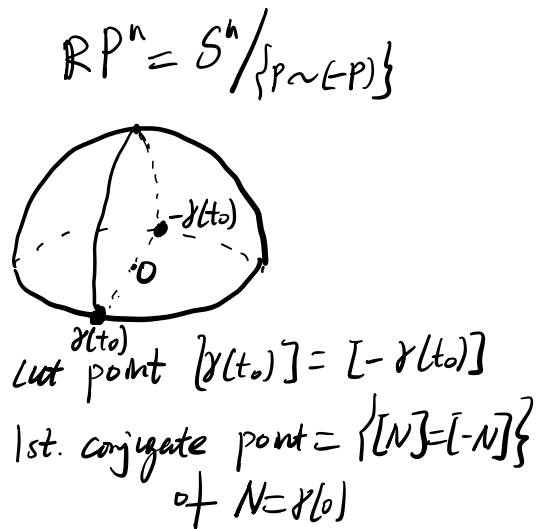 RPⁿ = Sⁿ/{P~(-P)}
-γ(t₀)
O
γ(t₀)
cut point [γ(t₀)] = [-γ(t₀)]
1st. conjugate point = {[N]=[-N]}
of N=γ(0)